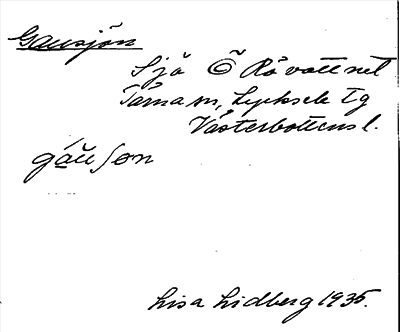 Gausjön
Sjö Ö Råvattnet
Tärna sn, Lycksele tg
Västerbottens l.
gàu ʃön
Lisa Lidberg 1935.